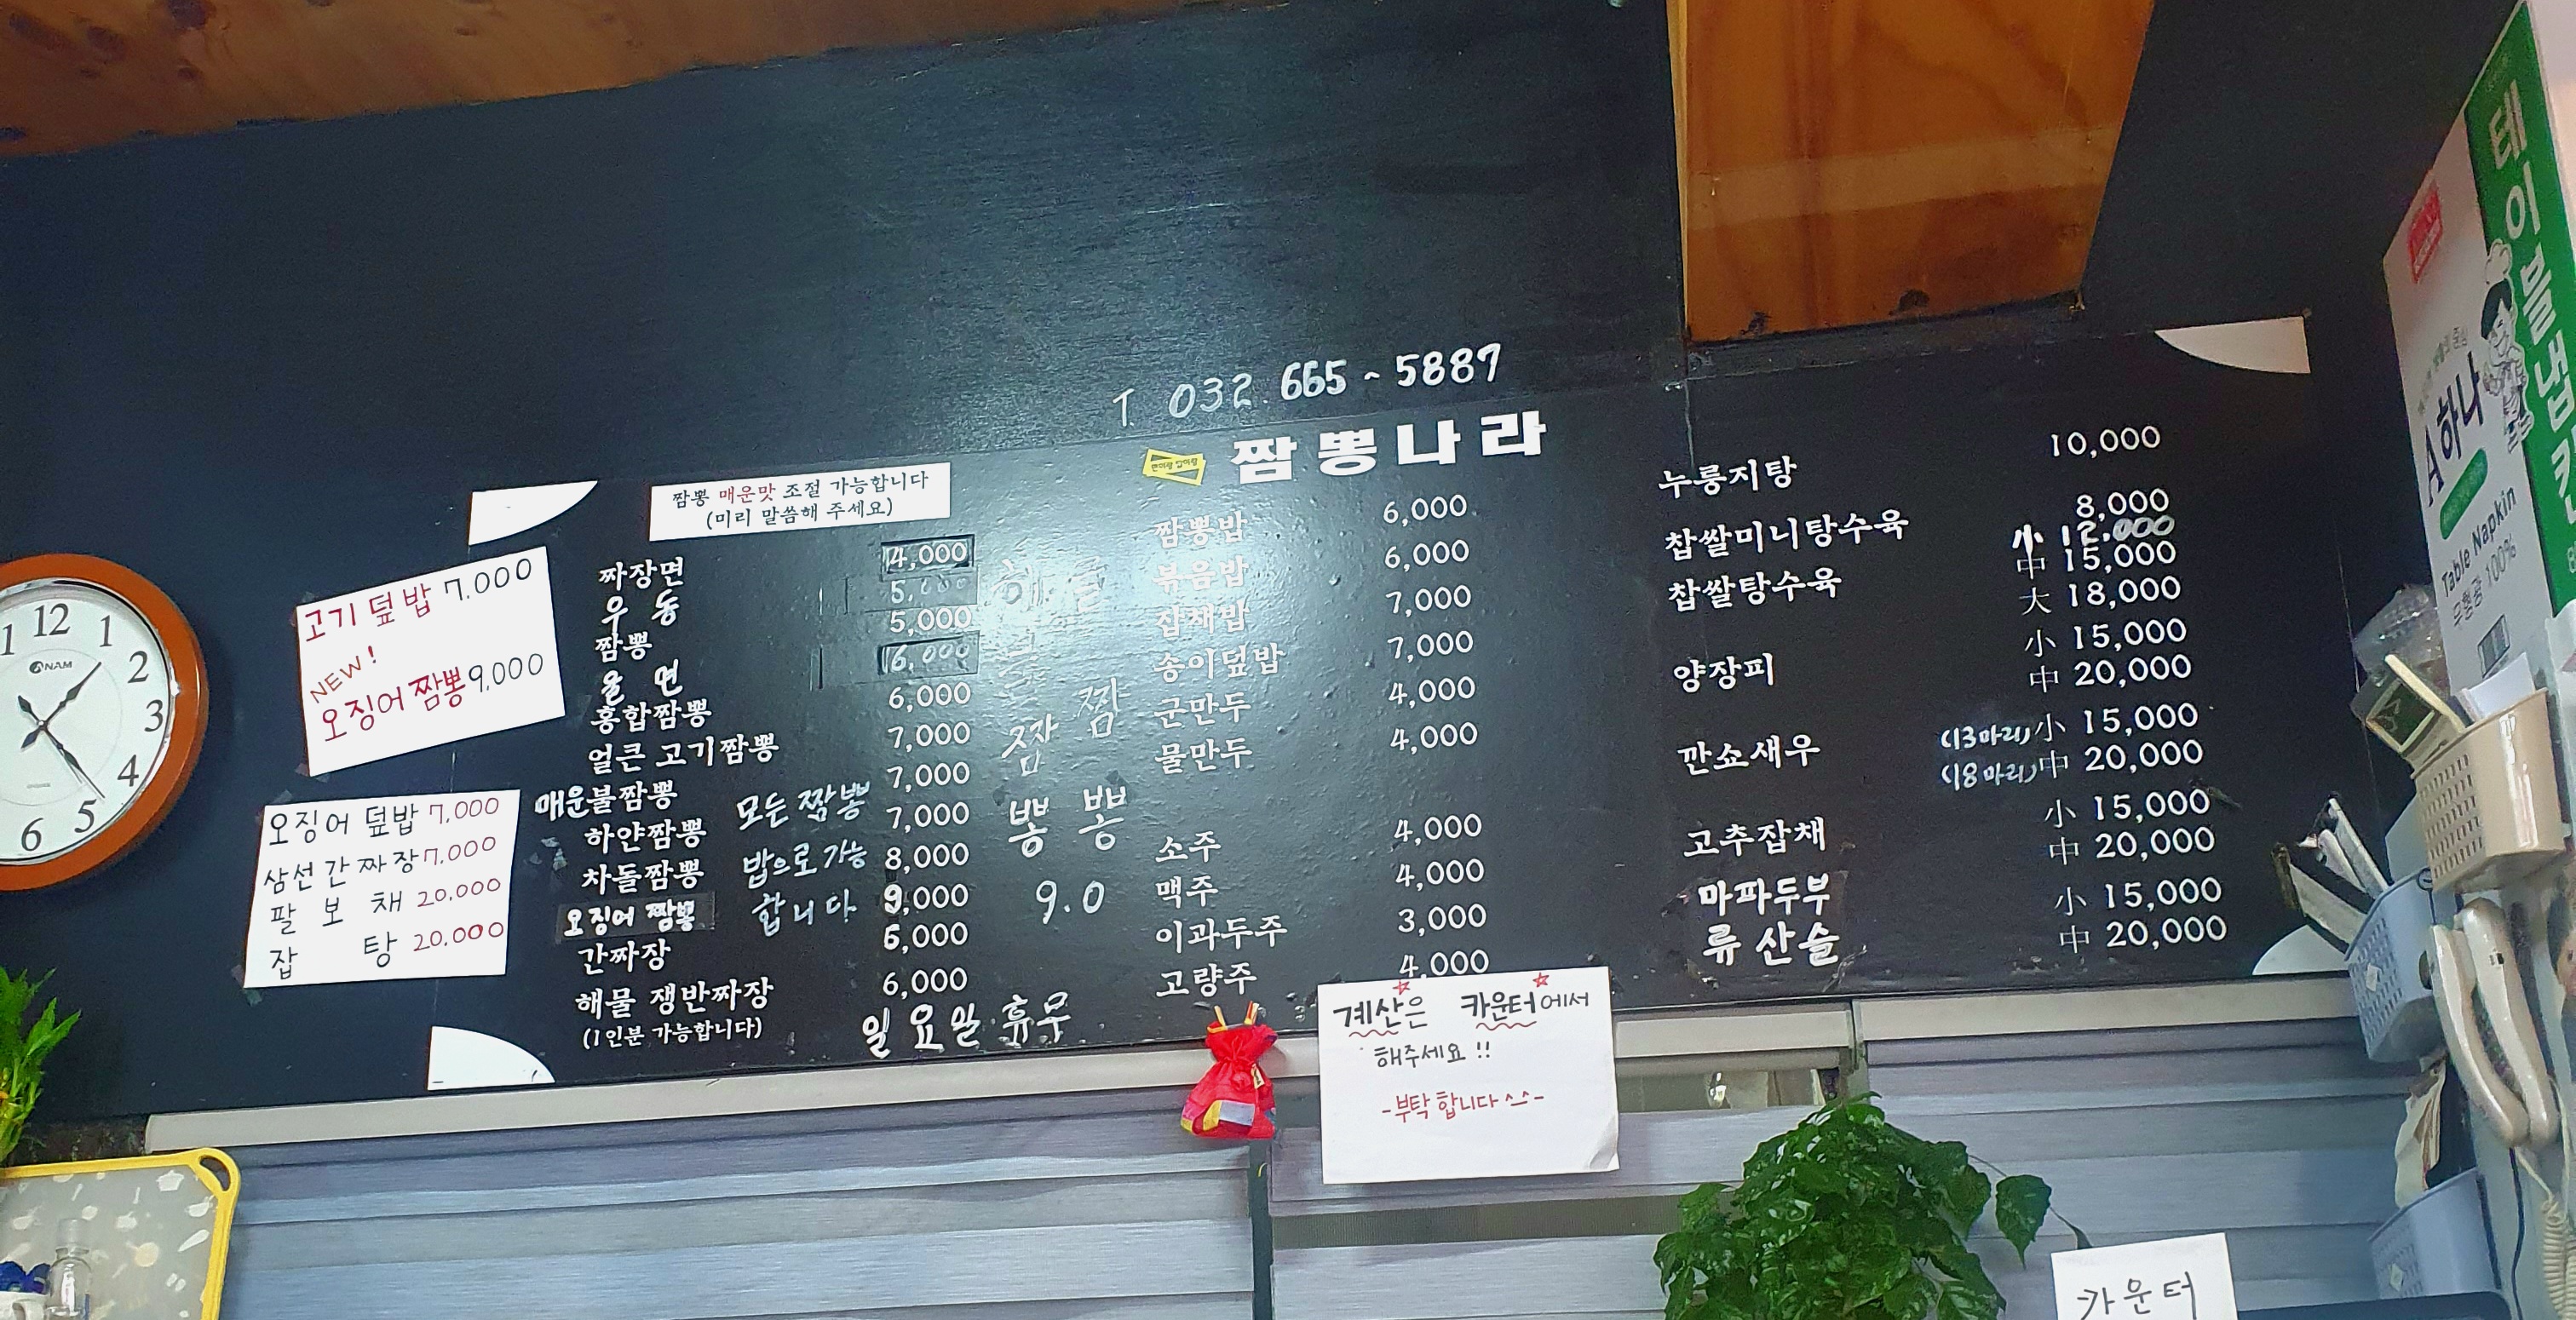 T 032. 665~5887
짬뽕나라
짬뽕 매운맛 조절 가능합니다
(미리 말씀해 주세요)
고기덮밥 7.000
NEW!
오징어짬뽕 9,000
오징어 덮밥 7,000
삼선간짜장 7,000
팔보채 20.000
잡탕 20.000
짜장면 4,000
우동 5,000
짬뽕 5,000
울면 6,000
홍합짬뽕 6,000
얼큰 고기짬뽕 7,000
매운불짬뽕 7,000
하얀짬뽕 7,000
차돌짬뽕 8,000
오징어 짬뽕 9,000
간짜장 5,000
해물 쟁반짜장 6,000
(1인분 가능합니다)
모든 짬뽕
밥으로 가능
합니다
일요일 휴무
짬 짬
뽕 뽕
9.0
짬뽕밥 6,000
볶음밥 6,000
잡채밥 7,000
송이덮밥 7,000
군만두 4,000
물만두 4,000
소주 4,000
맥주 4,000
이과두주 3,000
고량주 4,000
누룽지탕 10,000
찹쌀미니탕수육 8,000
찹쌀탕수육 小 12.000
中 15,000
大 18,000
양장피 小 15,000
中 20,000
깐쇼새우 (13마리) 小 15,000
(18마리) 中 20,000
고추잡채 小 15,000
中 20,000
마파두부
류산슬
小 15,000
中 20,000
계산은 카운터에서
해주세요!!
-부탁합니다^^-
카운터
테이블냅킨
A하나
Table Napkin
무형광 100%
ANAM
12
1
2
3
4
5
6